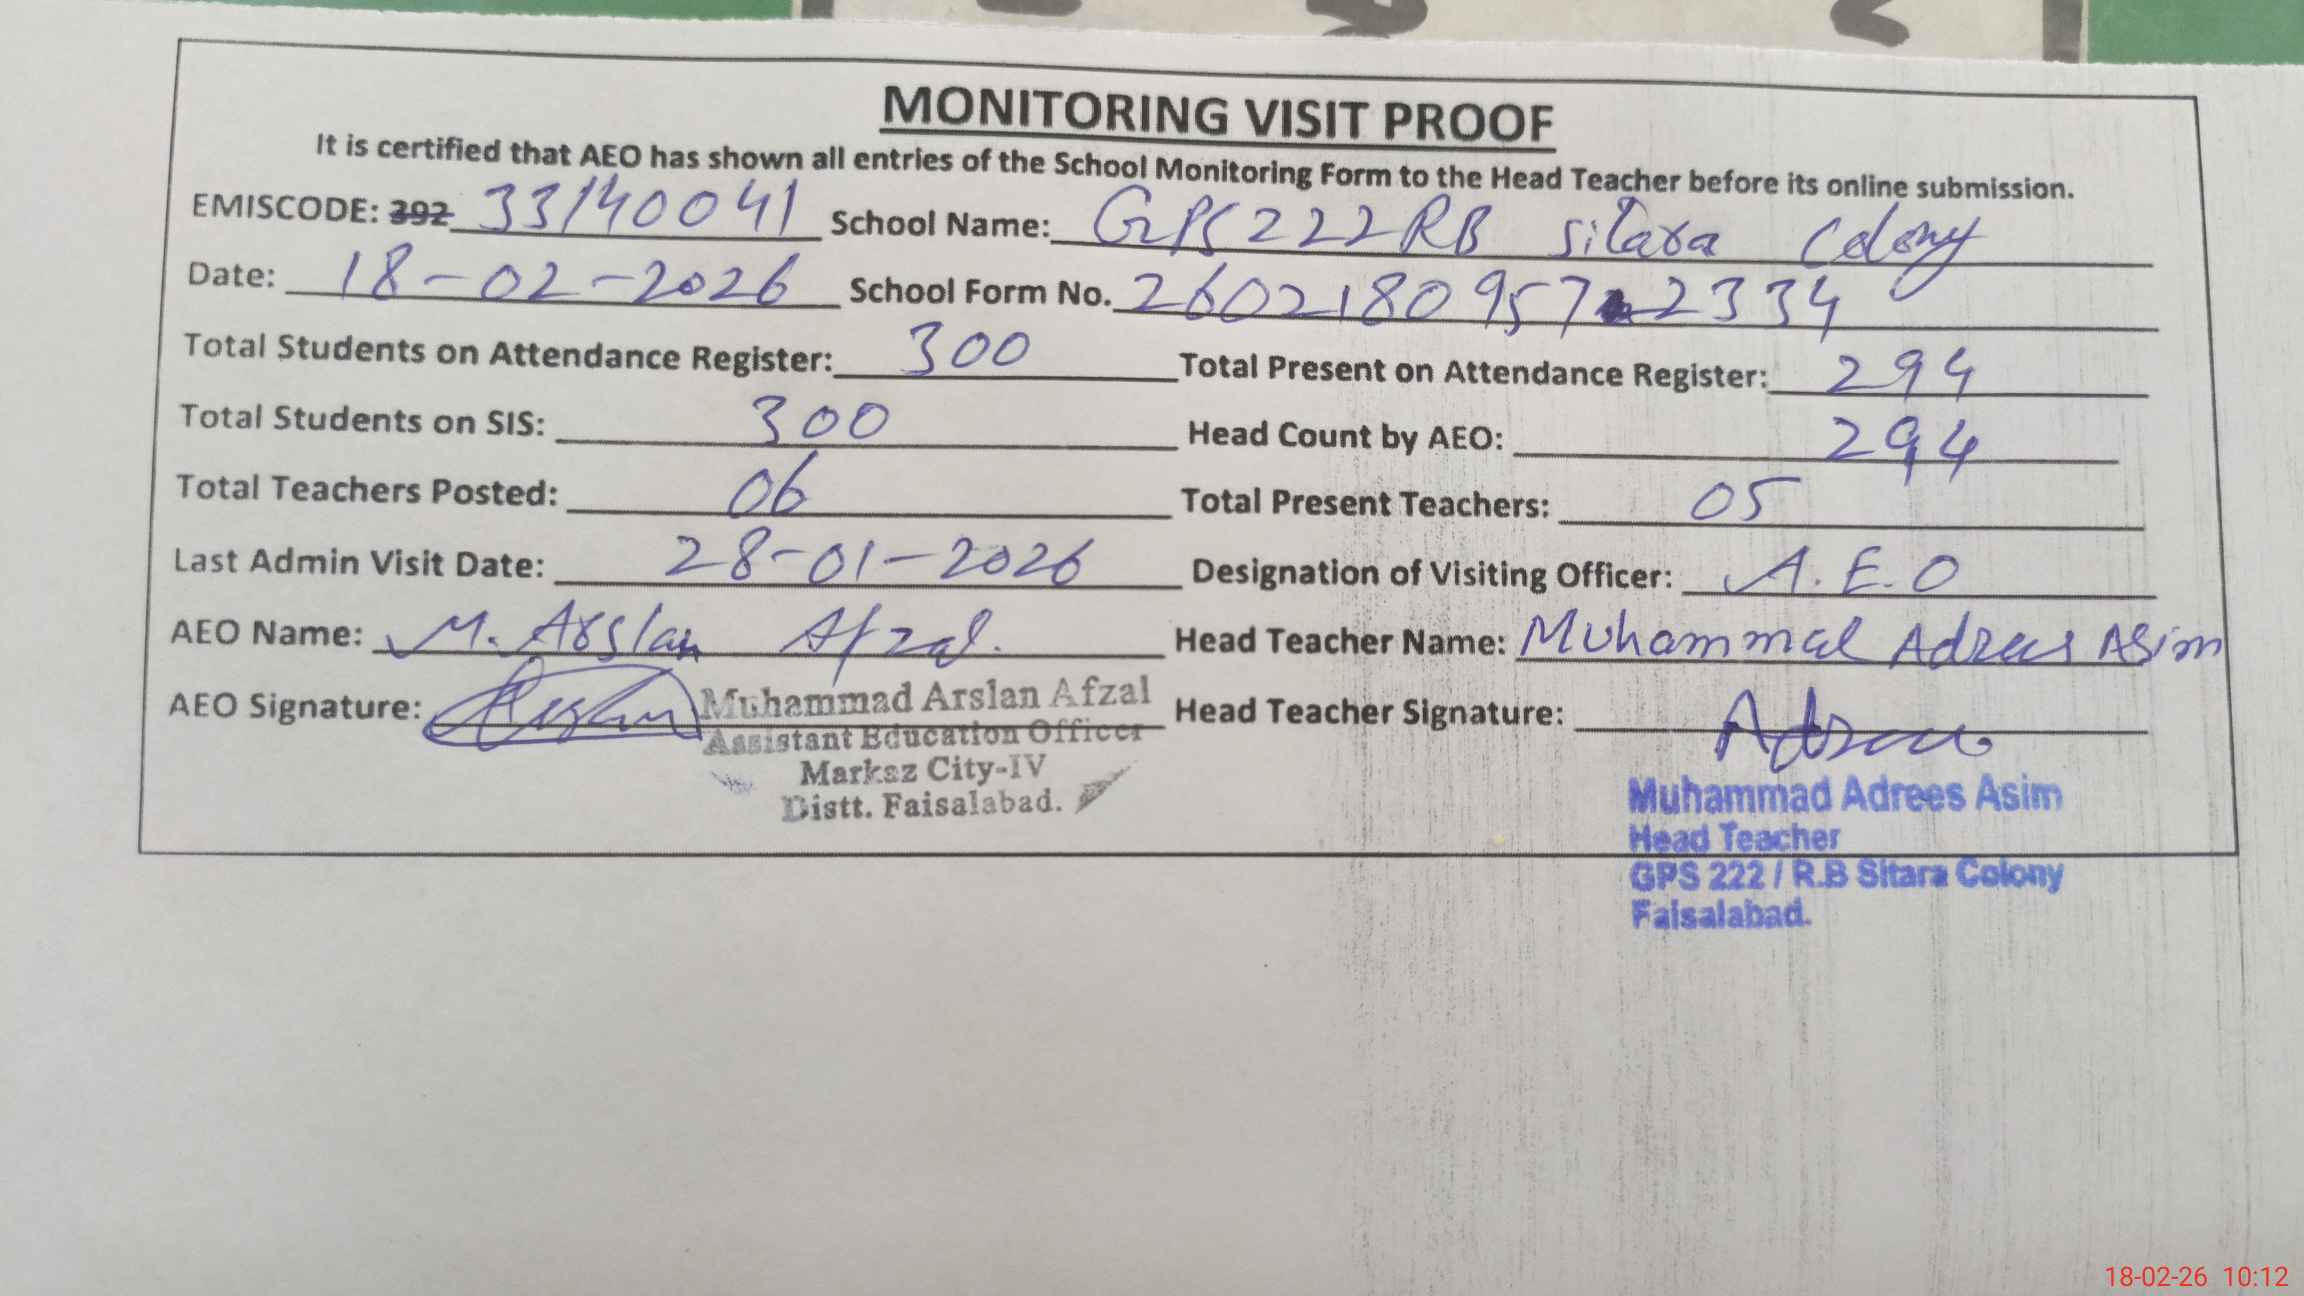 MONITORING VISIT PROOF
It is certified that AEO has shown all entries of the School Monitoring Form to the Head Teacher before its online submission.
EMISCODE: 392 33140041 School Name: GPS 222 RB Sitara Colony
Date: 18-02-2026 School Form No. 2602180957 2334
Total Students on Attendance Register: 300 Total Present on Attendance Register: 294
Total Students on SIS: 300 Head Count by AEO: 294
Total Teachers Posted: 06 Total Present Teachers: 05
Last Admin Visit Date: 28-01-2026 Designation of Visiting Officer: A.E.O
AEO Name: M. Arslan Afzal. Head Teacher Name: Muhammad Adrees Asim
AEO Signature: Head Teacher Signature: Adrees
Muhammad Arslan Afzal
Assistant Education Officer
Markaz City-IV
Distt. Faisalabad.
Muhammad Adrees Asim
Head Teacher
GPS 222 / R.B Sitara Colony
Faisalabad.
18-02-26 10:12